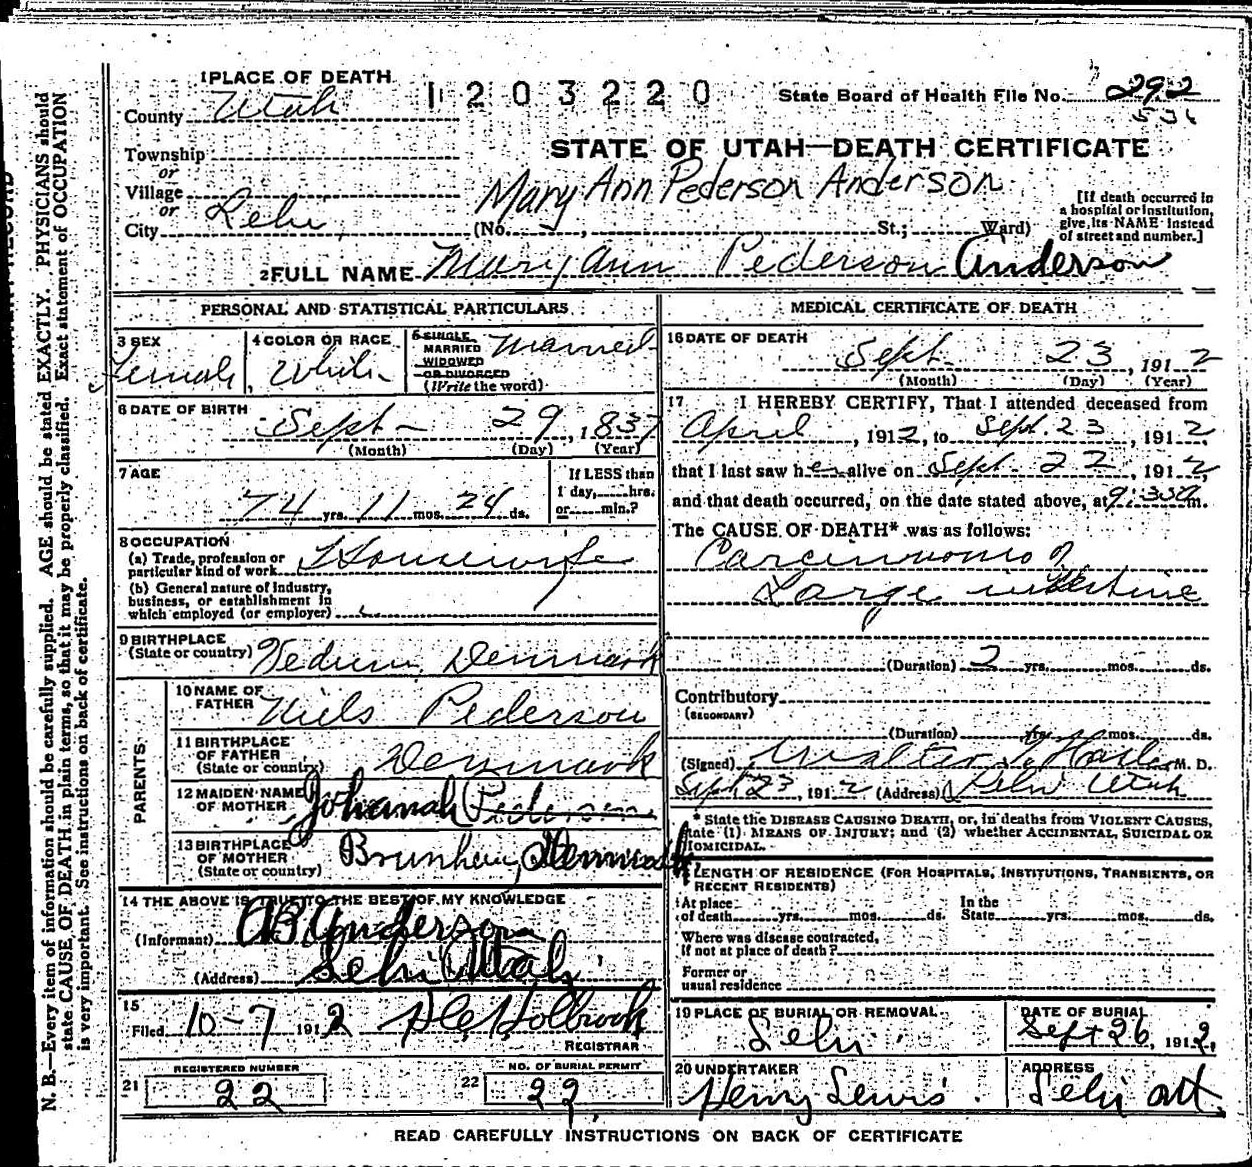 1 PLACE OF DEATH
1203220
State Board of Health File No. 292
County Utah
STATE OF UTAH—DEATH CERTIFICATE
Township
or
Village
or
City Lehi
Mary Ann Pederson Anderson
(No. , St.; Ward)
[If death occurred in
a hospital or institution,
give its NAME instead
of street and number.]
2 FULL NAME Mary Ann Pederson Anderson
PERSONAL AND STATISTICAL PARTICULARS
3 SEX
Female
4 COLOR OR RACE
White
5 SINGLE
MARRIED
WIDOWED
OR DIVORCED
(Write the word)
Married
6 DATE OF BIRTH
Sept 29, 1837
(Month) (Day) (Year)
7 AGE
74 yrs. 11 mos. 24 ds.
If LESS than
1 day, hrs.
or min.?
8 OCCUPATION
(a) Trade, profession or
particular kind of work Housewife
(b) General nature of industry,
business, or establishment in
which employed (or employer)
9 BIRTHPLACE
(State or country) Vedum, Denmark
PARENTS
10 NAME OF
FATHER Niels Pederson
11 BIRTHPLACE
OF FATHER
(State or country) Denmark
12 MAIDEN NAME
OF MOTHER Johanah Pederson
13 BIRTHPLACE
OF MOTHER
(State or country) Denmark
14 THE ABOVE IS TRUE TO THE BEST OF MY KNOWLEDGE
(Informant) AB Anderson
(Address) Lehi Utah
15
Filed 10-7 1912 Holbrook
REGISTRAR
21 REGISTERED NUMBER
22
22 NO. OF BURIAL PERMIT
22
MEDICAL CERTIFICATE OF DEATH
16 DATE OF DEATH
Sept 23, 1912
(Month) (Day) (Year)
17 I HEREBY CERTIFY, That I attended deceased from
April, 1912, to Sept 23, 1912,
that I last saw her alive on Sept. 22, 1912,
and that death occurred, on the date stated above, at 9:30 a m.
The CAUSE OF DEATH* was as follows:
Carcinnoma of
Large intestine
(Duration) 2 yrs. mos. ds.
Contributory
(SECONDARY)
(Duration) yrs. mos. ds.
(Signed) Walter M. D.
Sept 23, 1912 (Address) Lehi Utah
* State the DISEASE CAUSING DEATH, or, in deaths from VIOLENT CAUSES,
state (1) MEANS OF INJURY; and (2) whether ACCIDENTAL, SUICIDAL OR
HOMICIDAL.
LENGTH OF RESIDENCE (FOR HOSPITALS, INSTITUTIONS, TRANSIENTS, OR
RECENT RESIDENTS)
At place
of death yrs. mos. ds.
In the
State yrs. mos. ds.
Where was disease contracted,
if not at place of death?
Former or
usual residence
19 PLACE OF BURIAL OR REMOVAL
Lehi
DATE OF BURIAL
Sept 26, 1912.
20 UNDERTAKER
Henry Lewis
ADDRESS
Lehi
READ CAREFULLY INSTRUCTIONS ON BACK OF CERTIFICATE
N. B.—Every item of information should be carefully supplied. AGE should be stated EXACTLY. PHYSICIANS should
state CAUSE OF DEATH in plain terms, so that it may be properly classified. Exact statement of OCCUPATION
is very important. See instructions on back of certificate.